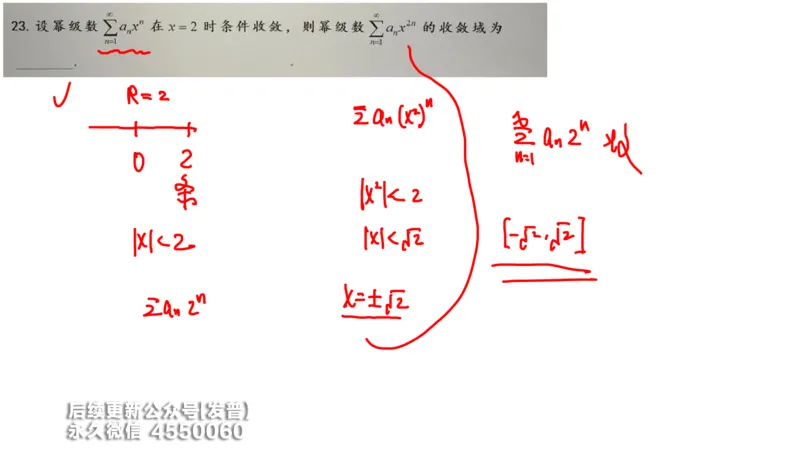 23. 设幂级数 $\sum_{n=1}^{\infty} a_n x^n$ 在 x = 2 时条件收敛，则幂级数 $\sum_{n=1}^{\infty} a_n x^{2n}$ 的收敛域为
________.
R=2
0 2
条
|x|<2
Σa_n 2^n
Σa_n(x²)^n
|x²|<2
|x|<√2
x=±√2
$\sum_{n=1}^{\infty} a_n 2^n$
[-√2,√2]
后续更新公众号(发普)
永久微信 4550060